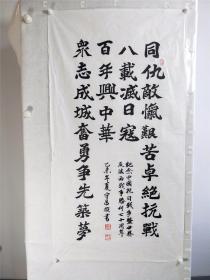 同仇敵愾艱苦卓絕抗戰
八載滅日寇
百年興中華
衆志成城奮勇争先築夢
紀念中國抗日戰争暨世界
反法西斯戰争勝利七十周年
乙未年夏
書